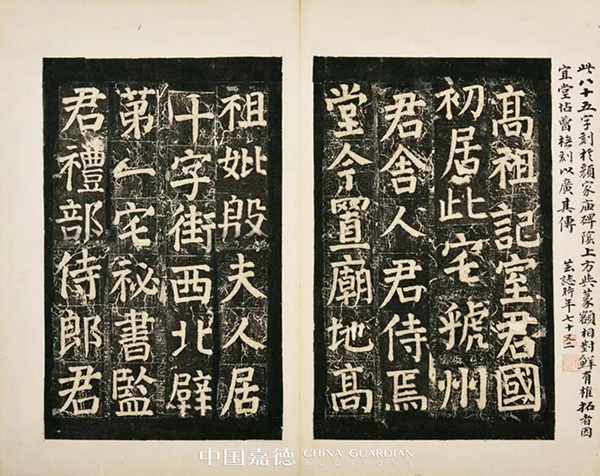 此八十五字刻於顏家庙碑陰上方与篆額相對鮮有椎拓者因
宜堂帖曾橅刻以廣其傳
芸誌時年七十又二
高祖記室君國
初居此宅虢州
君舍人君侍焉
堂今置廟地高
祖妣殷夫人居
十字街西北壁
第一宅祕書監
君禮部侍郎君
中国嘉德 CHINA GUARDIAN
AUCTIONS